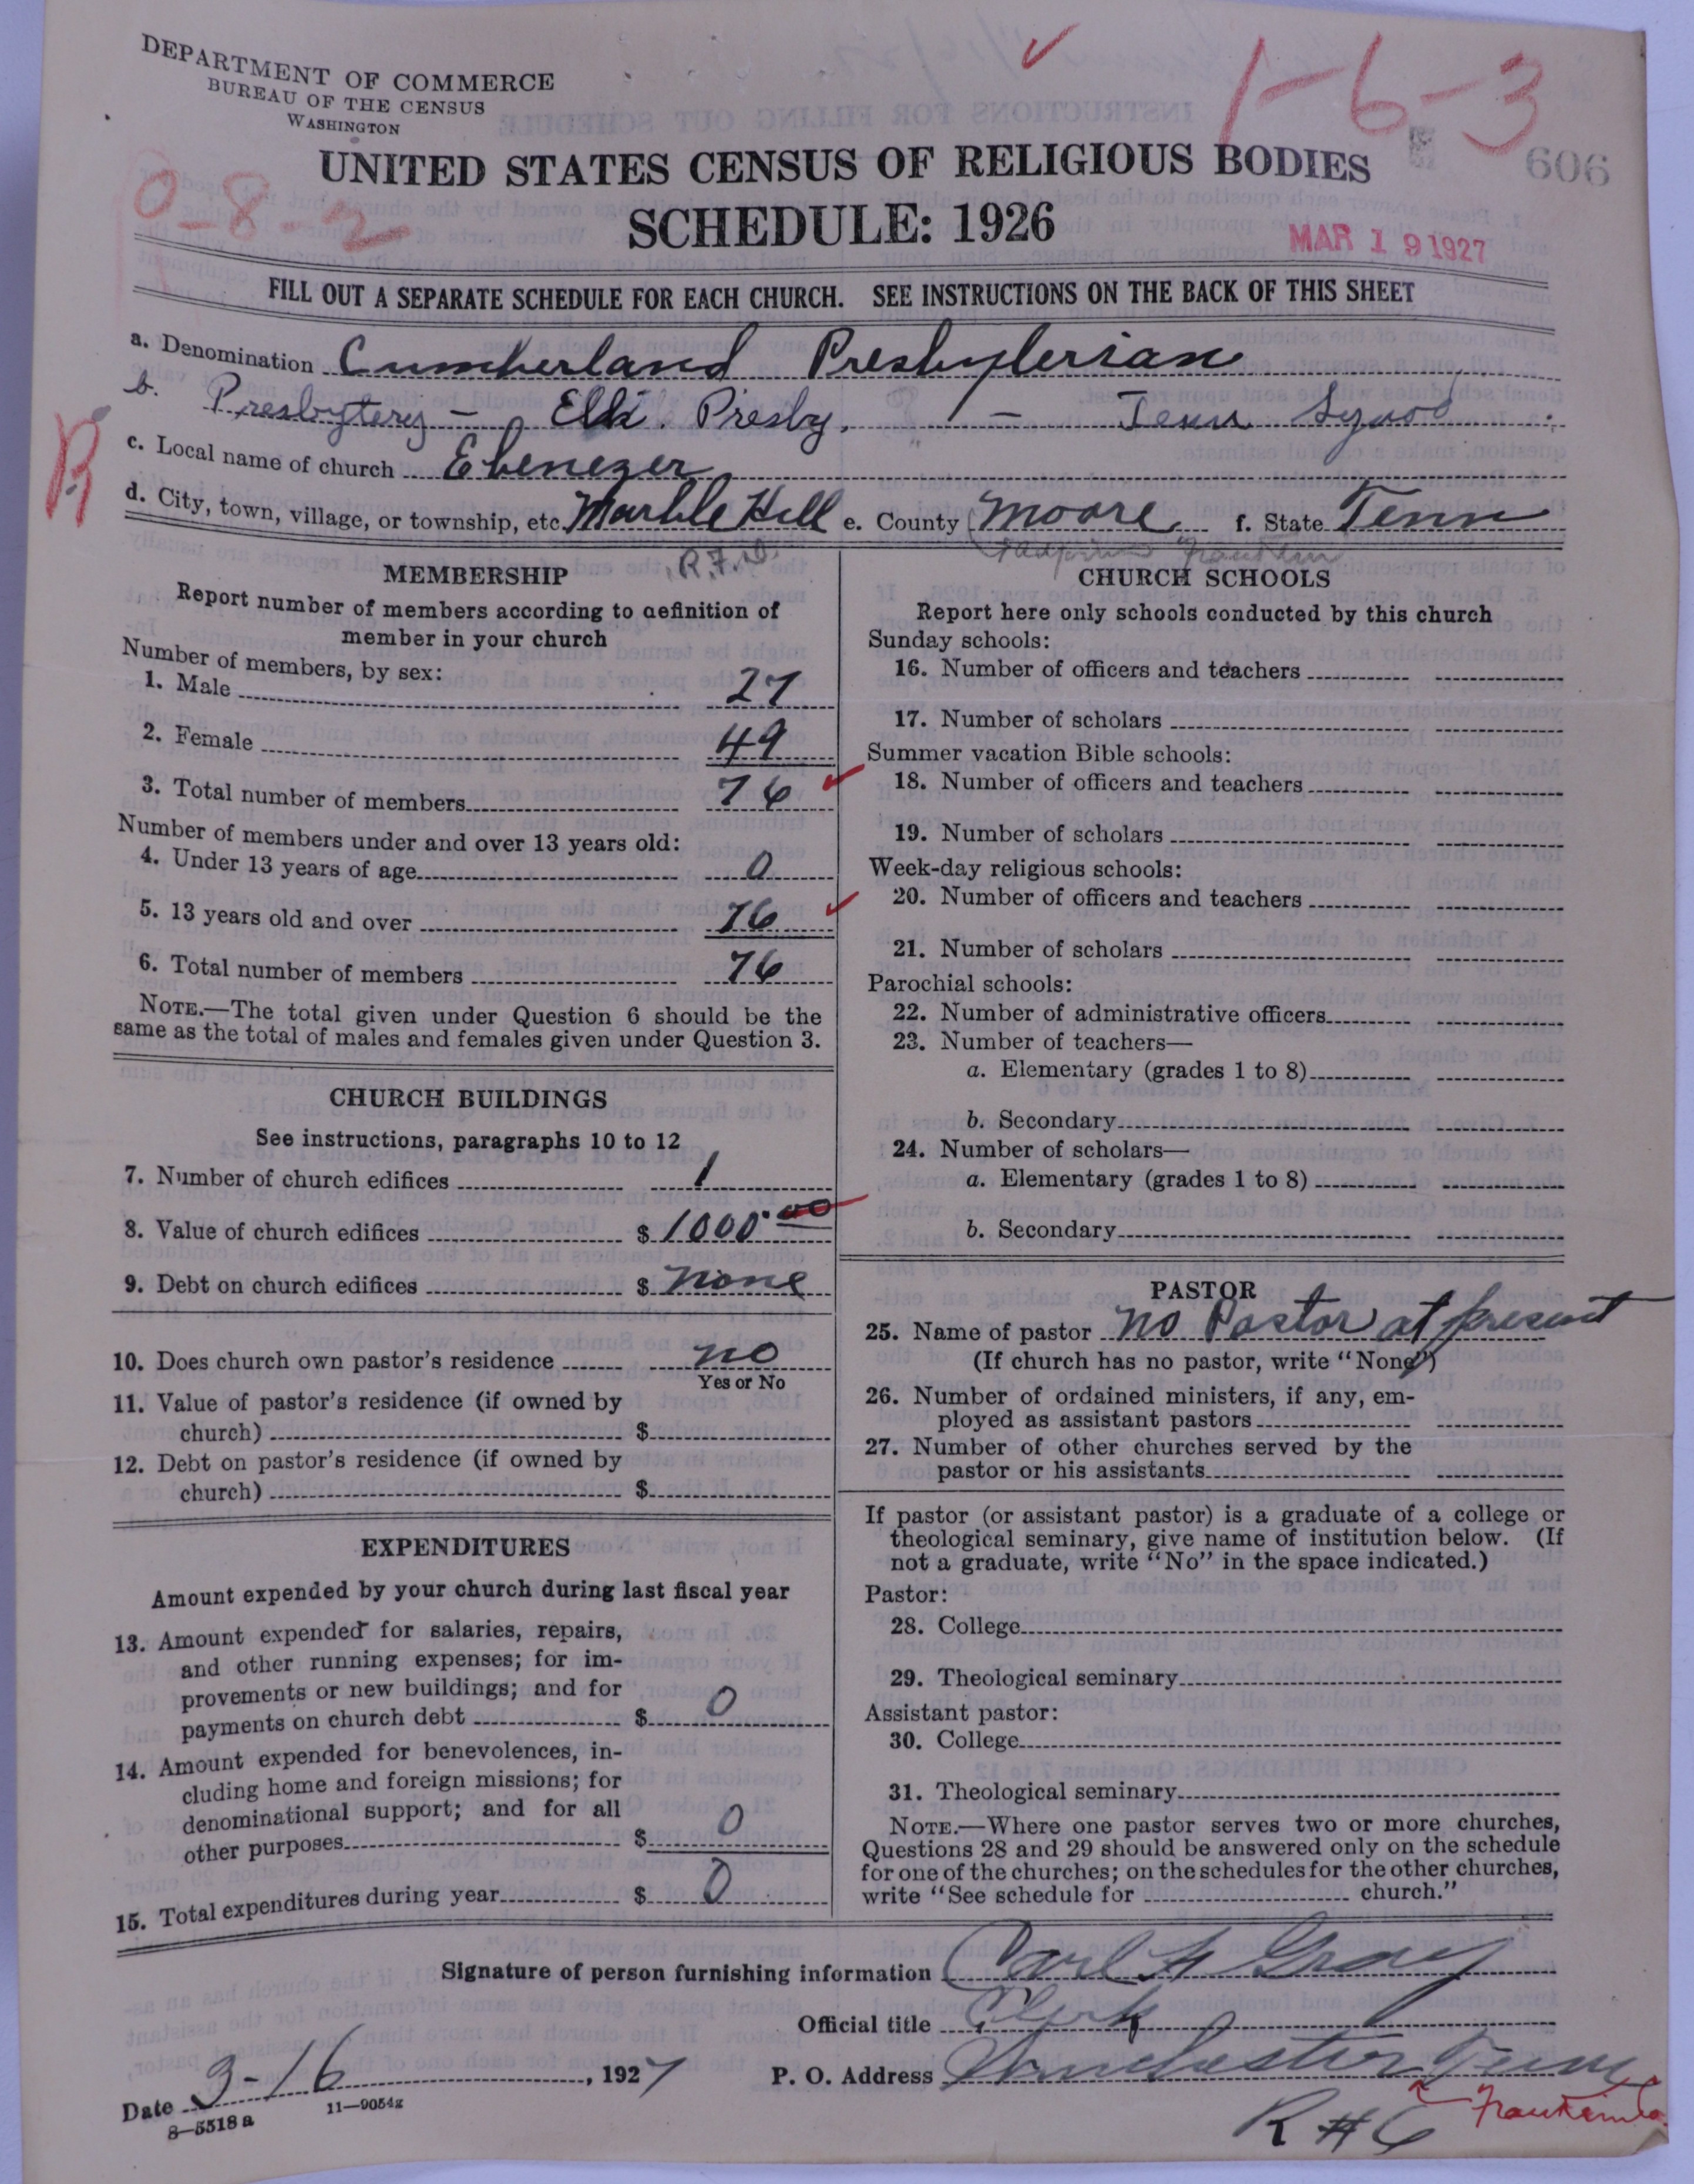 DEPARTMENT OF COMMERCE
BUREAU OF THE CENSUS
WASHINGTON
1-6-3
606
UNITED STATES CENSUS OF RELIGIOUS BODIES
0-8-2
SCHEDULE: 1926
MAR 19 1927
FILL OUT A SEPARATE SCHEDULE FOR EACH CHURCH. SEE INSTRUCTIONS ON THE BACK OF THIS SHEET
a. Denomination Cumberland Presbyterian
b. Presbytery - Elk Presby. - Tenn Synod
c. Local name of church Ebenezer
d. City, town, village, or township, etc. Marble Hill e. County Moore f. State Tenn
R.F.D.
MEMBERSHIP
Report number of members according to definition of
member in your church
Number of members, by sex:
1. Male 27
2. Female 49
3. Total number of members 76
Number of members under and over 13 years old:
4. Under 13 years of age 0
5. 13 years old and over 76
6. Total number of members 76
NOTE.—The total given under Question 6 should be the
same as the total of males and females given under Question 3.
CHURCH BUILDINGS
See instructions, paragraphs 10 to 12
7. Number of church edifices 1
8. Value of church edifices $ 1000.00
9. Debt on church edifices $ none
10. Does church own pastor's residence no
Yes or No
11. Value of pastor's residence (if owned by
church) $
12. Debt on pastor's residence (if owned by
church) $
EXPENDITURES
Amount expended by your church during last fiscal year
13. Amount expended for salaries, repairs,
and other running expenses; for im-
provements or new buildings; and for
payments on church debt $ 0
14. Amount expended for benevolences, in-
cluding home and foreign missions; for
denominational support; and for all
other purposes $ 0
15. Total expenditures during year $ 0
CHURCH SCHOOLS
Report here only schools conducted by this church
Sunday schools:
16. Number of officers and teachers
17. Number of scholars
Summer vacation Bible schools:
18. Number of officers and teachers
19. Number of scholars
Week-day religious schools:
20. Number of officers and teachers
21. Number of scholars
Parochial schools:
22. Number of administrative officers
23. Number of teachers—
a. Elementary (grades 1 to 8)
b. Secondary
24. Number of scholars—
a. Elementary (grades 1 to 8)
b. Secondary
PASTOR
25. Name of pastor no Pastor at present
(If church has no pastor, write "None")
26. Number of ordained ministers, if any, em-
ployed as assistant pastors
27. Number of other churches served by the
pastor or his assistants
If pastor (or assistant pastor) is a graduate of a college or
theological seminary, give name of institution below. (If
not a graduate, write "No" in the space indicated.)
Pastor:
28. College
29. Theological seminary
Assistant pastor:
30. College
31. Theological seminary
NOTE.—Where one pastor serves two or more churches,
Questions 28 and 29 should be answered only on the schedule
for one of the churches; on the schedules for the other churches,
write "See schedule for church."
Signature of person furnishing information Carl F Gray
Official title Clerk
Date 3-16, 1927 P. O. Address Winchester Tenn
8—5518 a 11—9054z
R#6 Franklin Co.